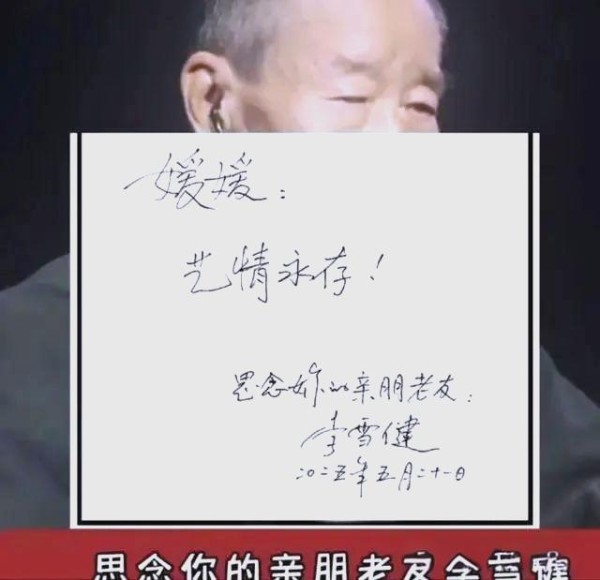 媛媛：
艺情永存！
思念妳的亲朋老友：
李雪健
二〇二五年五月二十一日
思念你的亲朋老友